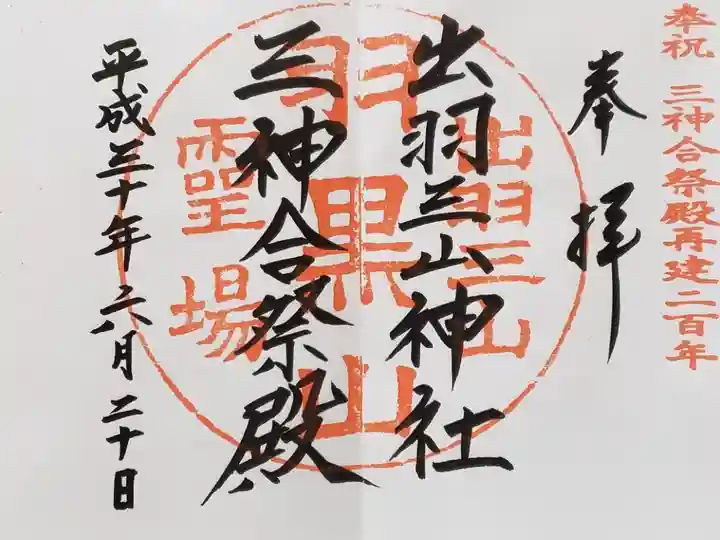 奉祝 三神合祭殿再建二百年
奉拝
出羽三山神社
三神合祭殿
平成三十年六月二十日
出羽三山
羽黒山
霊場